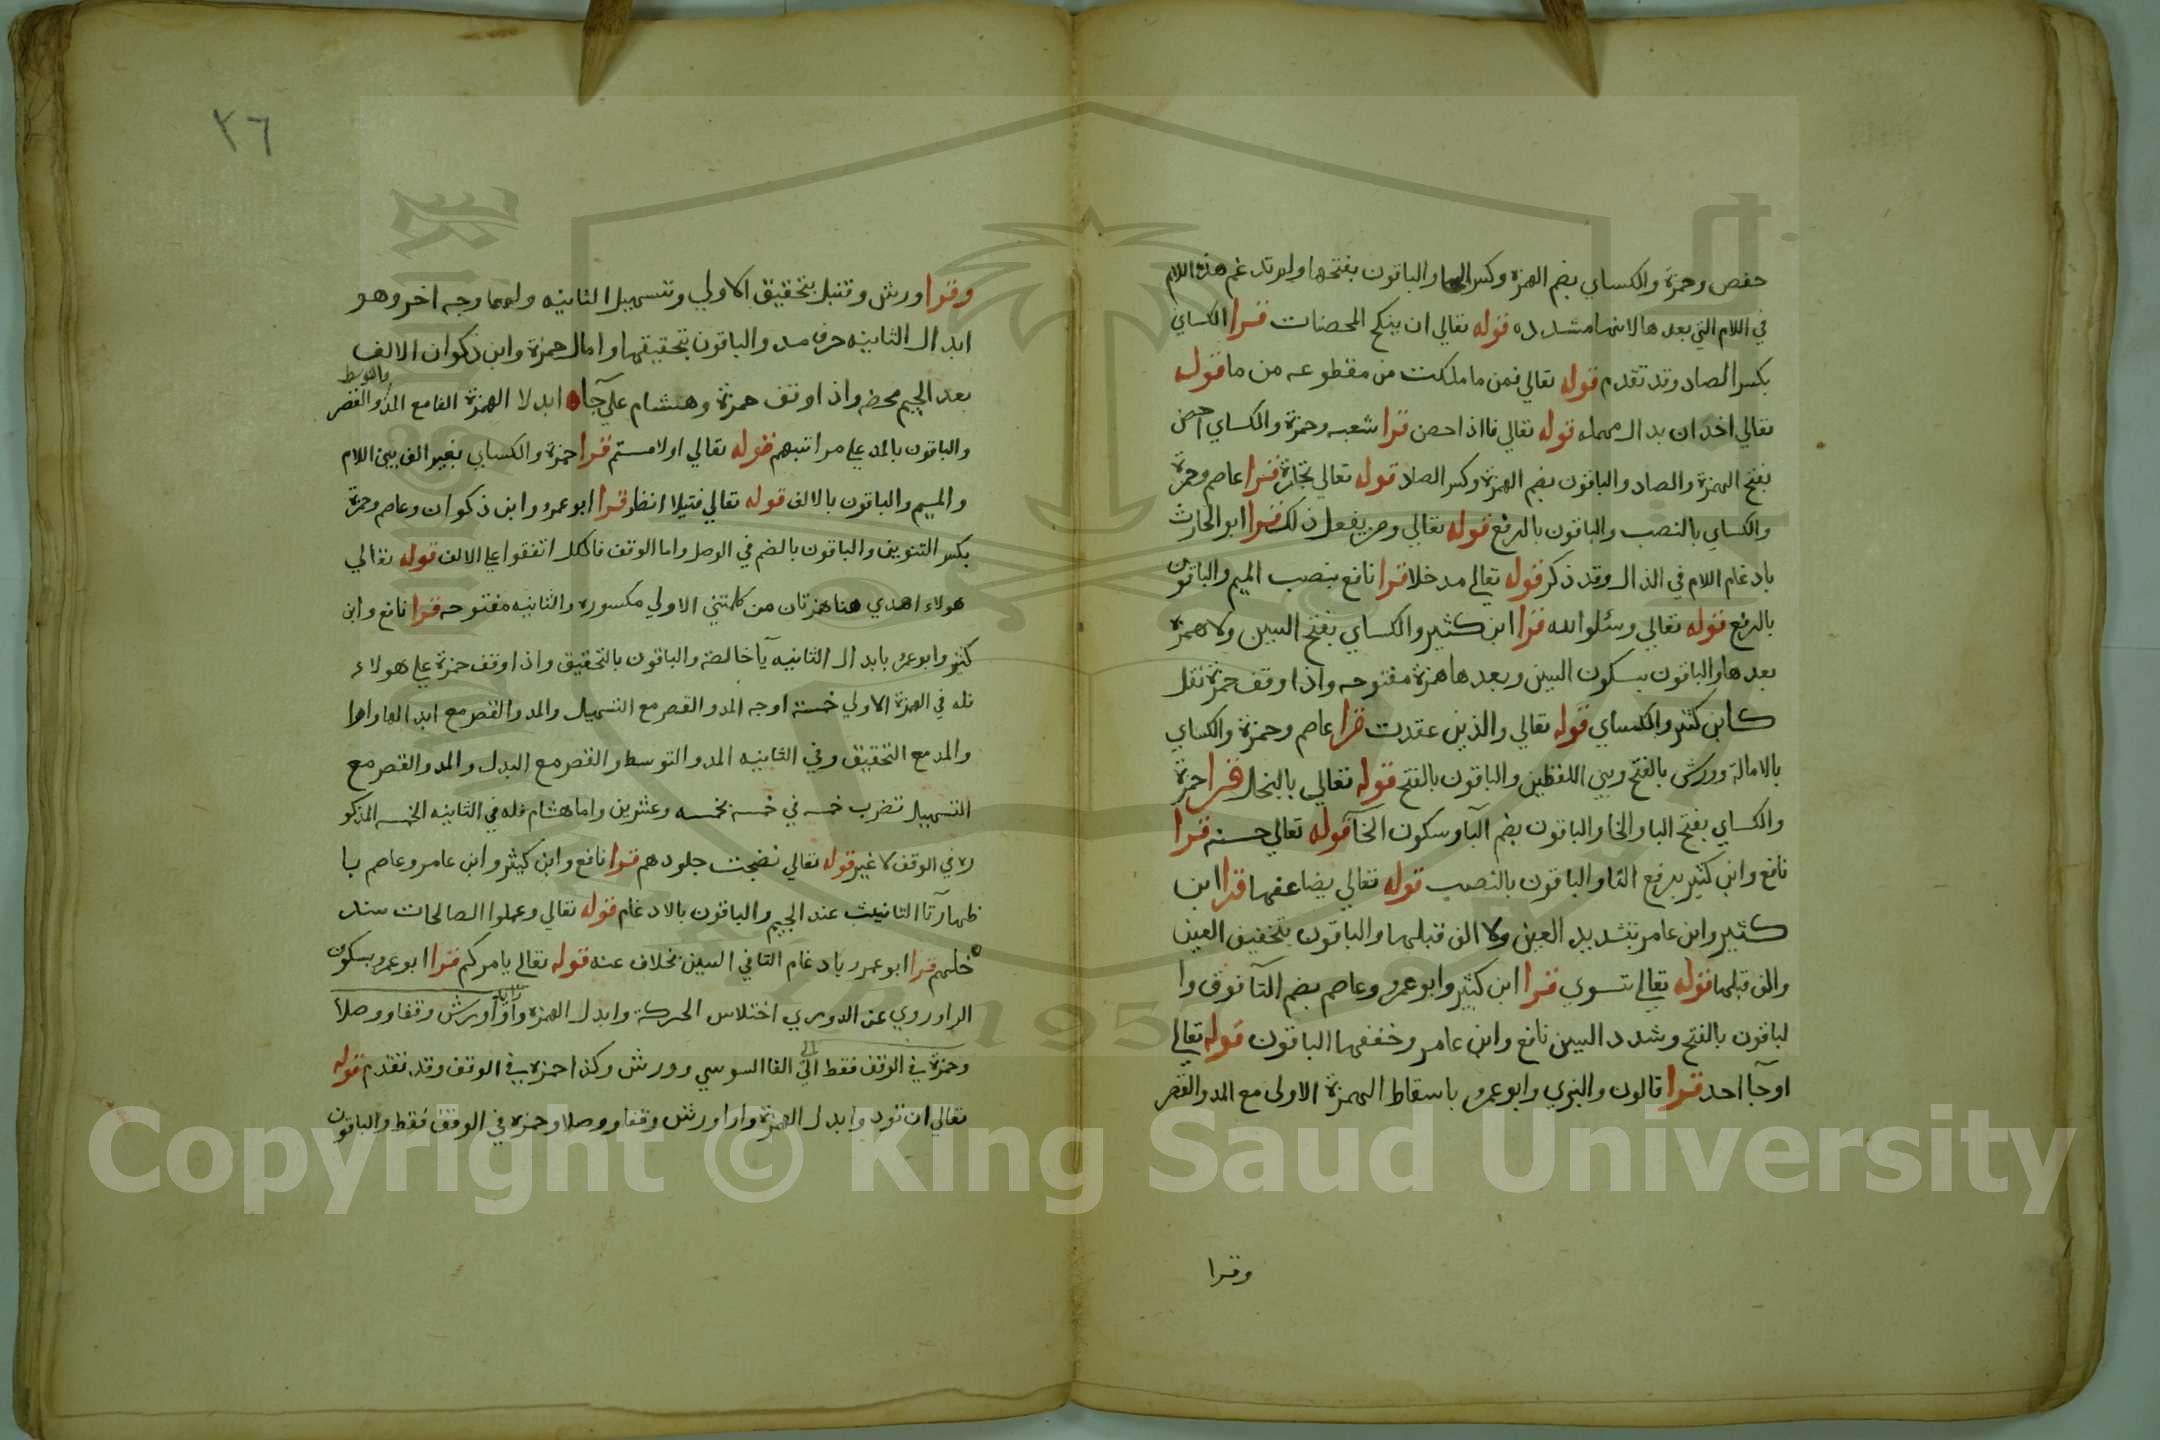 حفص وحمزة والكساي بضم الهمزة وكسر الها والباقون بفتحها ولم تدغم هذه اللام
في اللام التي بعدها لانها مشدده قوله تعالي ان ينكح المحصنات قرا الكساي
بكسر الصاد وقد تقدم قوله تعالي فمن ما ملكت من مقطوعه من ما قوله
تعالي اخدان بدال مهمله قوله تعالي فاذا احصن قرا شعبه وحمزة والكساي احصن
بفتح الهمزة والصاد والباقون بضم الهمزة وكسر الصاد قوله تعالي تجارة قرا عاصم وحمزة
والكساي بالنصب والباقون بالرفع قوله تعالي ومن يفعل ذلك قرا ابو الحارث
بادغام اللام في الذال وقد ذكر قوله تعالي مدخلا قرا نافع بنصب الميم والباقون
بالرفع قوله تعالي وسئلوا الله قرا ابن كثير والكساي بفتح السين ولا همزة
بعدها والباقون بسكون السين وبعدها همزة مفتوحه واذا وقف حمزة نقل
كابن كثير والكساي قوله تعالي والذين عقدت قرا عاصم وحمزة والكساي
بالامالة وورش بالفتح وبين اللفظين والباقون بالفتح قوله تعالي بالبخل قرا حمزة
والكساي بفتح البا والخا والباقون بضم البا وسكون الخا قوله تعالي حسنه قرا
نافع وابن كثير برفع التا والباقون بالنصب قوله تعالي يضاعفها قرا ابن
كثير وابن عامر بتشديد العين ولا الف قبلها والباقون بتخفيف العين
والف قبلها قوله تعالي تسوي قرا ابن كثير وابو عمرو وعاصم بضم التا فوق وا
لباقون بالفتح وشدد السين نافع وابن عامر وخففها الباقون قوله تعالي
اوجآ احد قرا قالون والبزي وابو عمرو باسقاط الهمزة الاولى مع المد والقصر
وقرا
٢٦
وقرا ورش وقنبل بتحقيق الاولي وتسهيل الثانيه ولهما وجه اخر وهو
ابدال الثانيه حرف مد والباقون بتحقيقهما وامال حمزة وابن ذكوان الالف
بعد الجيم محضه واذا وقف حمزة وهشام علي جآ ابدلا الهمزة الفا مع المد والتوسط والقصر
والباقون بالمد علي مراتبهم قوله تعالي او لامستم قرا حمزة والكساي بغير الف بين اللام
والميم والباقون بالالف قوله تعالي فتيلا انظر قرا ابو عمرو وابن ذكوان وعاصم وحمزة
بكسر التنوين والباقون بالضم في الوصل واما الوقف فالكل اتفقوا علي الالف قوله تعالي
هولاء اهدي هنا همزتان من كلمتين الاولي مكسوره والثانيه مفتوحه قرا نافع وابن
كثير وابو عمرو بابدال الثانيه يآ خالصة والباقون بالتحقيق واذا وقف حمزة علي هولاء
فله في الهمزة الاولي خمسة اوجه المد والقصر مع التسهيل والمد والقصر مع ابدالها واوا
والمد مع التحقيق وفي الثانيه المد والتوسط والقصر مع البدل والمد والقصر مع
التسهيل تضرب خمسه في خمسه بخمسه وعشرين واما هشام فله في الثانيه الخمسه المذكو
ره في الوقف لا غير قوله تعالي نضجت جلودهم قرا نافع وابن كثير وابن عامر وعاصم با
ظهار تا التانيث عند الجيم والباقون بالادغام قوله تعالي وعملوا الصالحات سند
خلهم قرا ابو عمرو بادغام التا في السين بخلاف عنه قوله تعالي يامركم قرا ابو عمرو بسكون
الرا وروي عن الدوري اختلاس الحركة وابدل الهمزه ورش وقفا ووصلا
وحمزة في الوقف فقط الي الفا السوسي وورش وكذا حمزه في الوقف وقد تقدم قوله
تعالي ان تودوا ابدل الهمزة واوا ورش وقفا ووصلا وحمزه في الوقف فقط والباقون
Copyright © King Saud University
1957